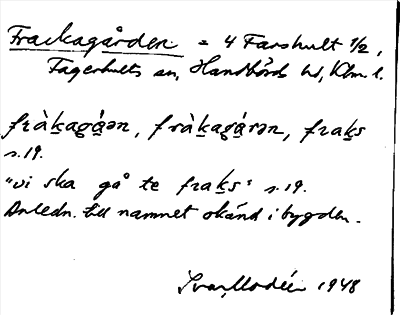 Frackagården = 4 Farshult 1/2,
Fagerhults sn, Handbörds hd, Klm l.
fràkagáən, fràkagárən, fraks
s. 19.
"vi ska gå te fraks" s. 19.
Anledn. till namnet okänd i bygden.
Ivar Modéer 1948